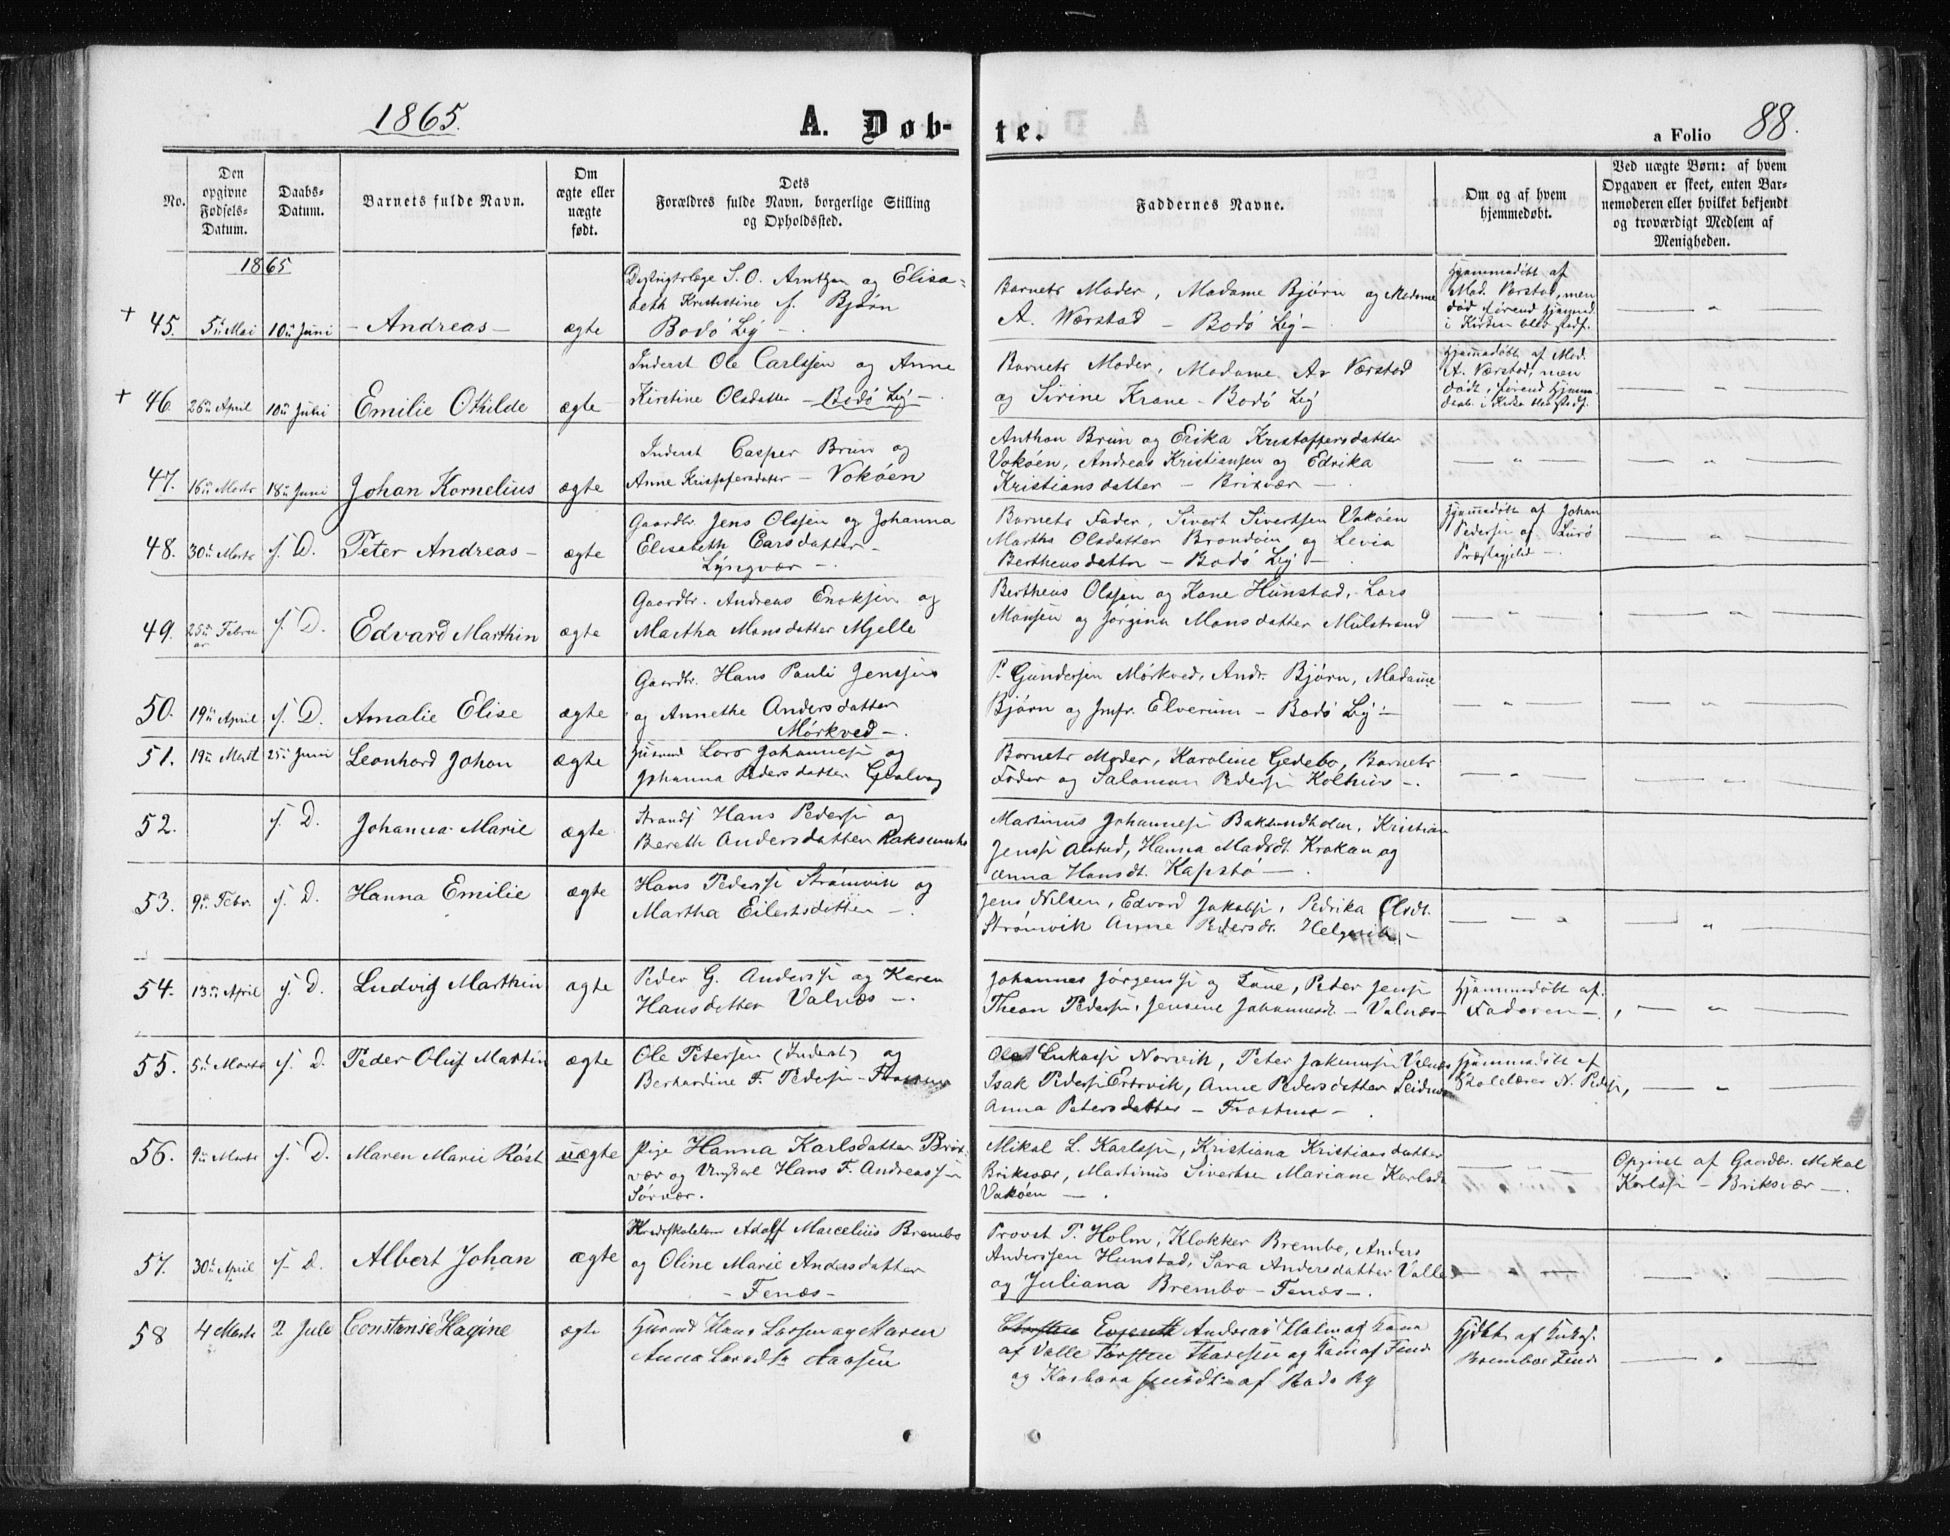 1865.
A. Døb-
te.
a Folio 88.
No.
Den
opgivne
Fødsels-
Datum.
Daabs-
Datum.
Barnets fulde Navn.
Om
ægte eller
uægte
født.
Dets
Forældres fulde Navn, borgerlige Stilling
og Opholdssted.
Faddernes Navne.
Om og af hvem
hjemmedøbt.
Ved uægte Børn: af hvem
Opgaven er skeet, enten Bar-
nemoderen eller hvilket bekjendt
og troværdigt Medlem af
Menigheden.
1865
+ 45. 5te Mai 10de Juni - Andreas - ægte
S. O. Arntzen og Elisa-
beth Kristine f. Bjørn
Bodø By -
Barnets Moder, Madame Bjørn og Madame
A. Værstad - Bodø By -
Hjemmedøbt af
Mad. Værstad, men
død, førend Hjemmed.
i Kirken blev stadf.
+ 46. 26de April 10de Juni Emilie Othilde ægte
Inderst Ole Carlssen og Anne
Kirstine Olsdatter - Bodø By -
Barnets Moder, Madame A. Værstad
og Sirine Krane - Bodø By
Hjemmedøbt af Mad.
A. Værstad, men
død, førend Hjemme-
daab. i Kirken blev stadf.
47. 16de Marts 18de Juni Johan Kornelius ægte
Inderst Casper Brun og
Anne Kristofersdatter - Vokøen
Anthon Brun og Erika Kristoffersdatter
Vokøen, Andreas Kristiansen og Edrika
Kristiansdatter - Brixvær -
48. 30te Marts s. D. Peter Andreas - ægte
Gaardbr. Jens Olssen og Johanna
Elisabeth Larsdatter -
Lyngvær -
Barnets Fader, Sivert Sivertsen Vokøen
Martha Olsdatter Brandøen og Levia
Bertheusdatter - Bodø By -
Hjemmedøbt af Johan
Pedersen af Lurø
Præstegjeld -
49. 25de Februar s. D. Edvard Marthin ægte
Gaardbr. Andreas Enoksen og
Martha Monsdatter Mjelle
Bertheus Olssen og Kone Hunstad, Lars
Monsen og Jørgina Monsdatter Mulstrand
50. 19de April s. D. Amalie Elise ægte
Gaardbr. Hans Pauli Jenssen
og Annethe Andersdatter
Mørkved -
P. Gundersen Mørkved, Andr. Bjørn, Madame
Bjørn og Jmfr. Elverum - Bodø By -
51. 19de Marts 25de Juni Leonhard Johan ægte
Husmand Lars Johannes. og
Johanna Pedersdatter
Barnets Moder, Karoline Gedebo, Barnets
Fader og Salamon Peders. Kolhus -
52. s. D. Johanna Marie ægte
Strands. Hans Peders. og
Bereth Andersdatter
Martinus Johannes. Baklundholm, Kristian
Jens. Alstad, Hanna Madsdt. Krokan og
Anna Hansdt. Kapstø -
53. 9de Febr. s. D. Hanna Emilie ægte
Hans Peders. Strømvik og
Martha Eilertsdatter -
Jens Nilsen, Edvard Jakobs., Pedrika Olsdt.
Strømvik Anne Pedersdt. Helgevik -
54. 13de April s. D. Ludvig Marthin ægte
Peder G. Anders. og Karen
Hansdatter Valnæs -
Johannes Jørgens. og Lune, Peter Jens.
Theon Peders., Jensine Johannesdt. - Valnæs -
Hjemmedøbt af
Faderen -
55. 5te Marts s. D. Peder Oluf Martin ægte
Ole Petersen (Inderst) og
Berhardine F. Peders. -
Ole Lukass. Norvik, Peter Jakobs. Valnæs
Isak Peders. Ertsvik, Anne Pedersdatter Seidnes
Anna Petersdatter - Frostmo -
Hjemmedøbt af
Skolelærer N. Peders.
56. 9de Marts s. D. Maren Marie Røst uægte
Pige Hanna Karlsdatter Brix-
vær og Ungkarl Hans F. Andreass.
Sørvær.
Mikal L. Karlssen, Kristiana Kristiansdatter
Briksvær, Martinus Sivertsen Mariane Karlsdt.
Vokøen -
Opgivet af Gaardbr. Mikal
Karls. - Briksvær -
57. 30te April s. D. Albert Johan ægte
Kredsskolelærer Adolf Marcelius Brembo
og Oline Marie Andersdatter
- Fenæs -
Provst P. Holm, Klokker Brembo, Anders
Anderssen Hunstad, Sara Andersdatter Valle
og Juliana Brembo - Fenæs -
58 4 Marts 2 Juli Constanse Hagine ægte
Husmand Hans Larsen og Maren
Anna
Andreas Holm og Kone
af Valle Torsten Thoresen og Kone af Fenæs
og Barbara Jensdt. af Bodø By
Hjdøbt af
Bremboe Fenæs